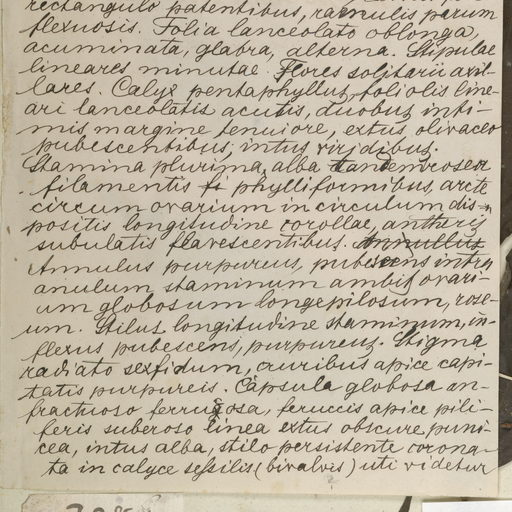 rectangulo patentibus, ramulis parum
flexuosis. Folia lanceolato oblonga,
acuminata, glabra, alterna. Stipulae
lineares minutae. Flores solitarii axil-
lares. Calyx pentaphyllus, foliolis line-
ari lanceolatis acutis, duobus inti-
mis margine tenuiore, extus olivaceo
pubescentibus, intus viridibus.
Stamina plurima, alba tandem rosea
filamentis phylliformibus, arcte
circum ovarium in circulum dis-
positis longitudine corollae, antheris
subulatis flavescentibus. Annullus
Annulus purpureus, pubescens intra
anulum staminum ambit ovari-
um globosum longe pilosum, rose-
um. Stilus longitudine staminum, in-
flexus pubescens, purpureus. Stigma
radiato sexfidum, cruribus apice capi-
tatis purpureis. Capsula globosa an-
fractuoso ferruginosa, feruccis apice pili-
feris suberoso linea extus obscure puni-
cea, intus alba, stilo persistente corona-
ta in calyce sessilis (bivalvis) uti videtur